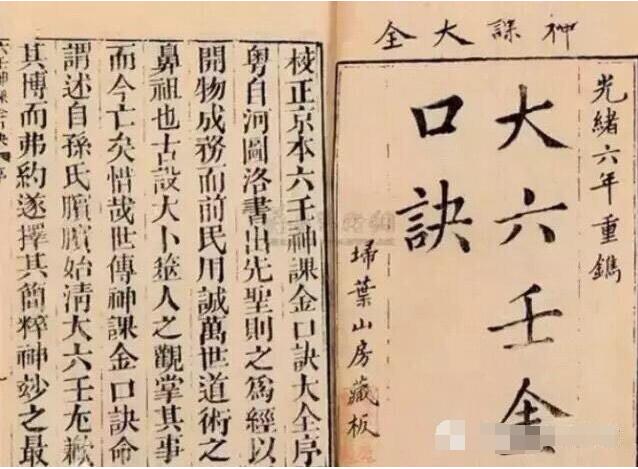 神課大全
光緒六年重鐫
大六壬金
口訣
埽葉山房藏板
校正京本六壬神課金口訣大全序
粵自河圖洛書出先聖則之爲經以
開物成務而前民用誠萬世道術之
鼻祖也古設大卜筮人之觀掌其事
而今亡矣惜哉世傳神課金口訣命
謂述自孫氏臏臏始清大六壬歉
其博而弗約遂擇其簡粹神妙之最
六壬神課金口訣 序